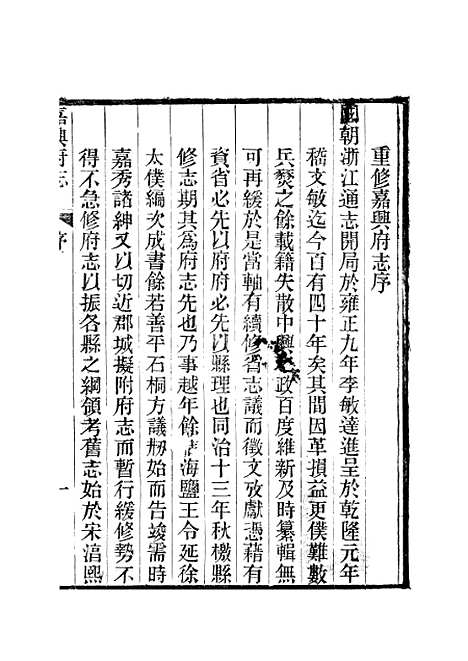 重修嘉興府志序
國朝浙江通志開局於雍正九年李敏達進呈於乾隆元年
嵇文敏迄今百有四十年矣其間因革損益更僕難數
兵燹之餘載籍失散中興 政百度維新及時纂輯無
可再緩於是當軸有續修省志議而徵文攷獻憑藉有
資省必先以府府必先以縣理也同治十三年秋檄縣
修志期其爲府志先也乃事越年餘 海鹽王令延徐
太僕編次成書餘若善平石桐方議剏始而告竣需時
嘉秀諸紳又以切近郡城擬附府志而暫行緩修勢不
得不急修府志以振各縣之綱領考舊志始於宋湻熙
嘉興府志 序 一